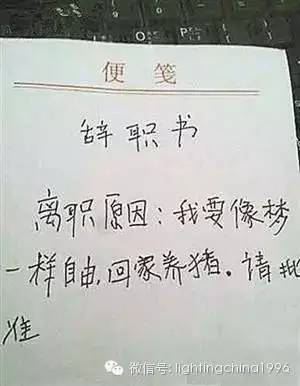 便笺
辞职书
离职原因：我要像梦
一样自由，回家养猪。请批
准
微信号: lightingchina1996